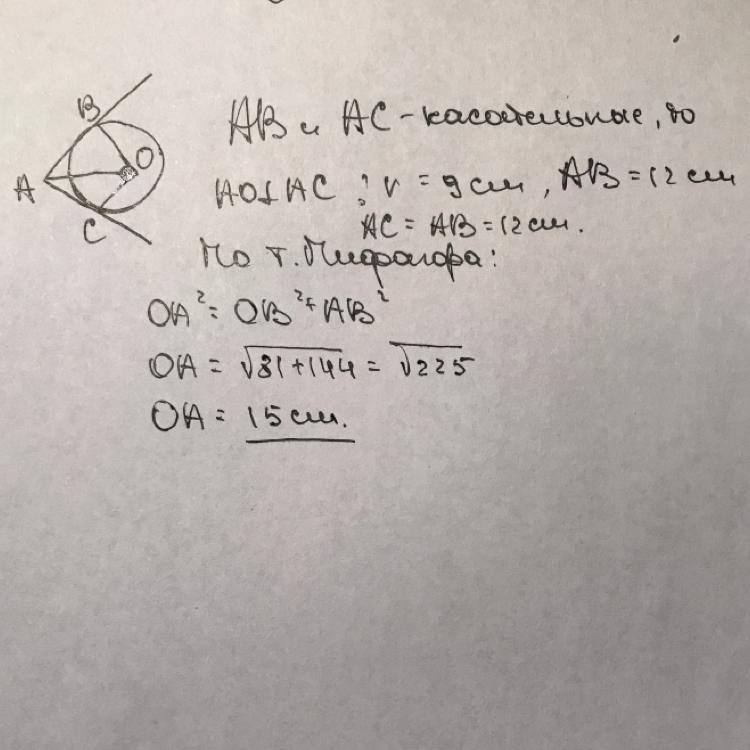 B
O
A
C
AB и AC - касательные, то
AO⊥AC ; r = 9 см, AB = 12 см
AC = AB = 12 см.
По т. Пифагора:
OA² = OB² + AB²
OA = √81+144 = √225
OA = 15 см.